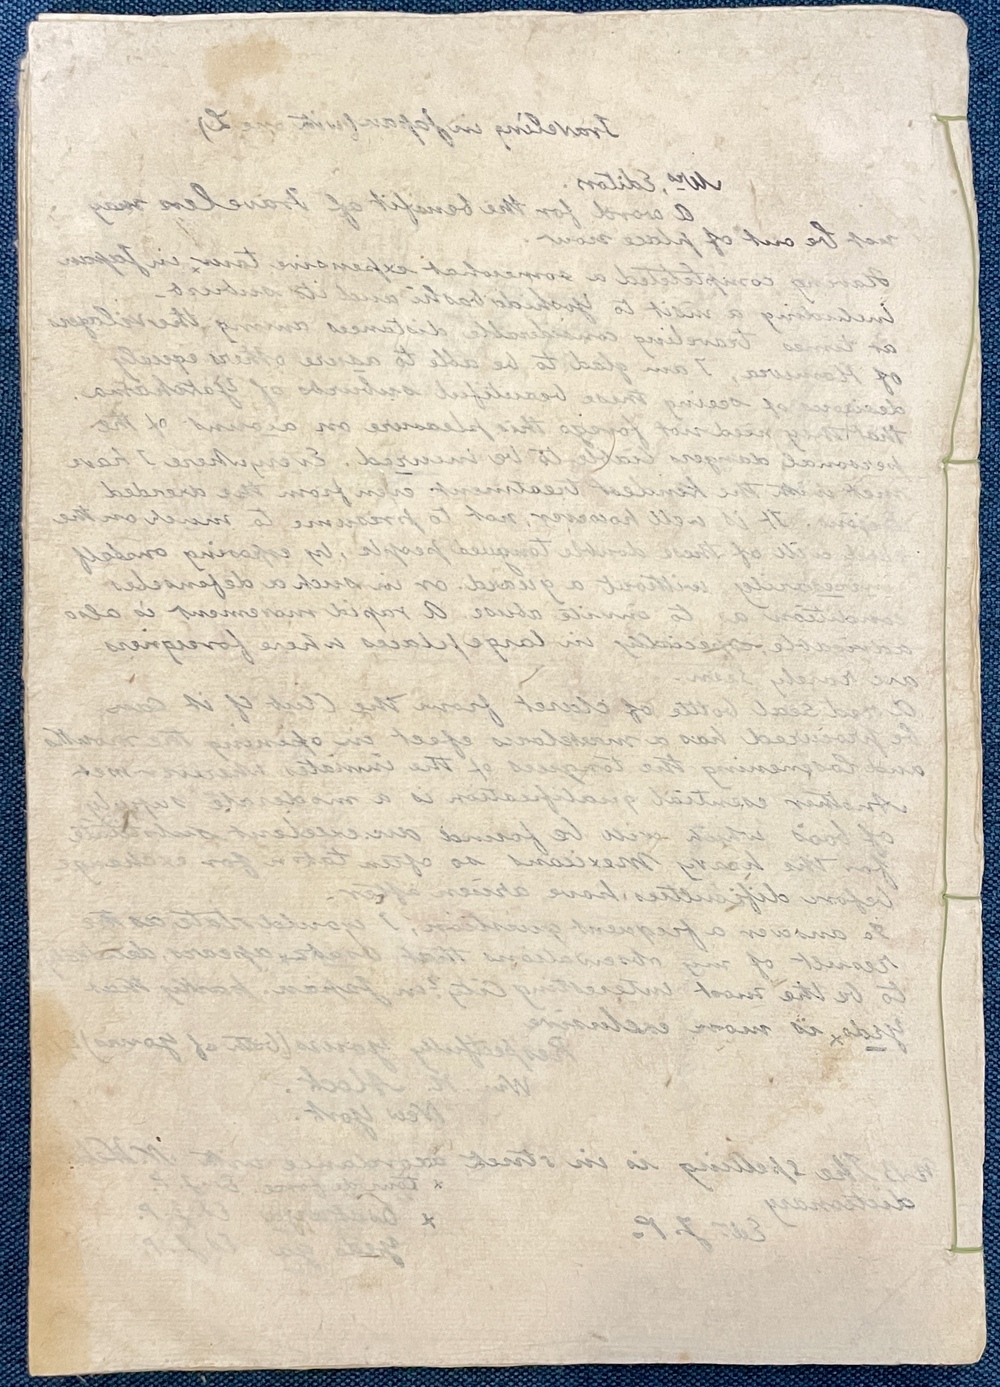 Traveling in Japan (with one L)
Mrs. Editor.
A word for the benefit of Travelers may
not be out of place now.
Having completed a somewhat expensive tour x in Japan
including a visit to Yoshidobashi and its suburbs.
at times traveling considerable distances among the vilagers
of Homura, I am glad to be able to asure others equally
desirous of seeing these beautiful suburbs of Yokohama.
that they need not forego this pleasure on acount of the
personal dangers liable to be incured. Everywhere I have
met with the kindest treatment even from the
It is well however, not to presume to much on the
will of these double tongued people, by exposing oneself
without a guard or in such a defenseles
condition as to invite abuse. A rapid movement is also
adviseable especially in large places where foreigners
are rarely seen.
A red seal bottle of claret from the Club if it can
be procured has a marvelous efect in opening the mouths
and loosening the tongues of the inmates wherever met
Another esential qualification is a moderate supply
of boos which will be found an excelent substitute
for the heavy Mexicans so often taken for exchange
before difficulties have arisen after.
To answer a frequent question, I would state as the
result of my observations that apears
to be the most interesting City in Japan. partly that
Yedo x is more exclusive
Respectfully yours (both of yours)!
Wm. H.
New York.
N.B. The spelling is in strict acordance with
dictionary
Ed. J. P.
x tour de force Ed J. P.
x
Yedo